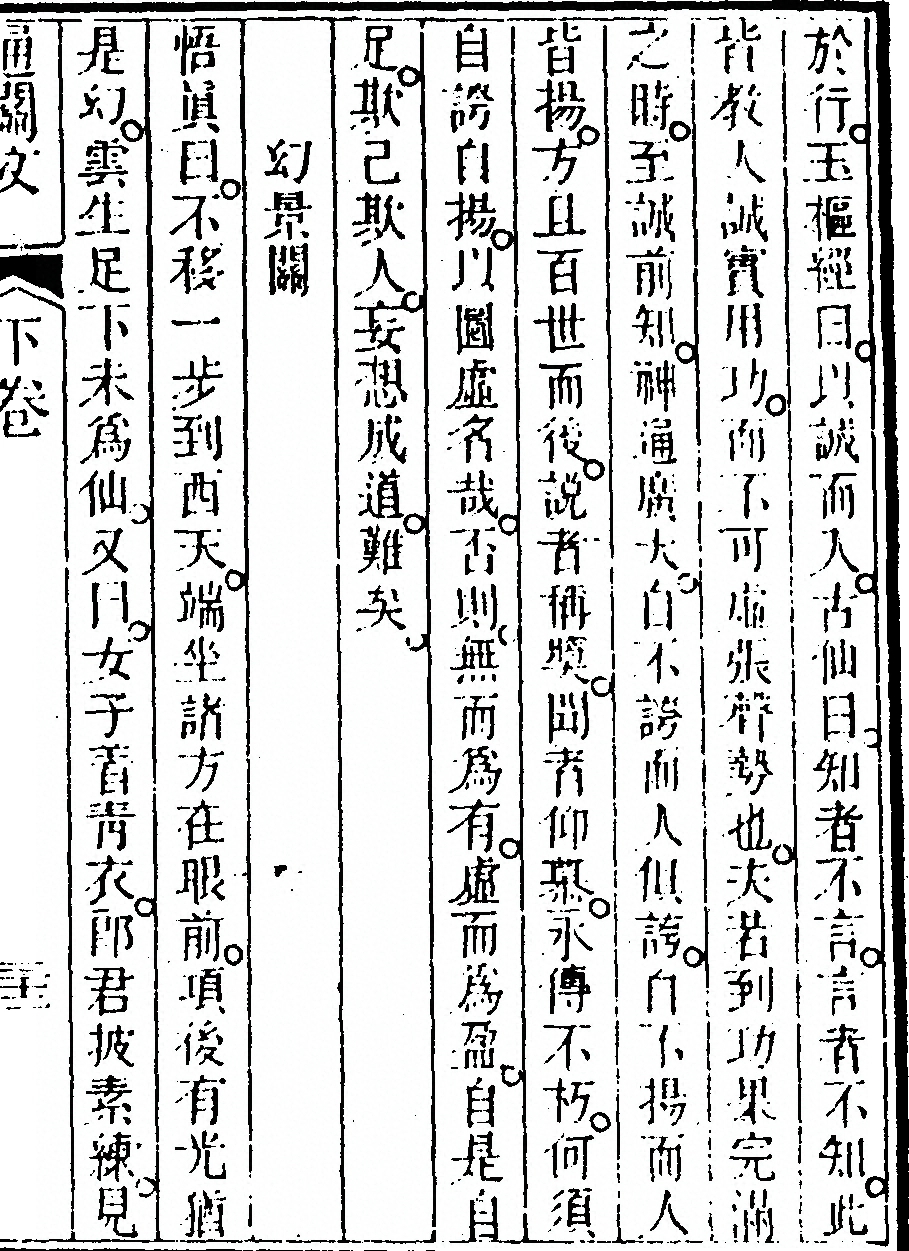 於行玉樞經曰以誠而入古仙曰知者不言言者不知此
皆教人誠實用功而不可虛張聲勢也夫若到功果完滿
之時至誠前知神通廣大自不誇而人俱誇自不揚而人
皆揚方且百世而後說者稱獎聞者仰慕永傳不朽何須
自誇自揚以圖虛名哉否則無而為有虛而為盈自是自
足欺己欺人妄想成道難矣
幻景關
悟眞曰不移一步到西天端坐諸方在眼前項後有光猶
是幻雲生足下未為仙又曰女子著青衣郎君披素練見
通關文
下卷